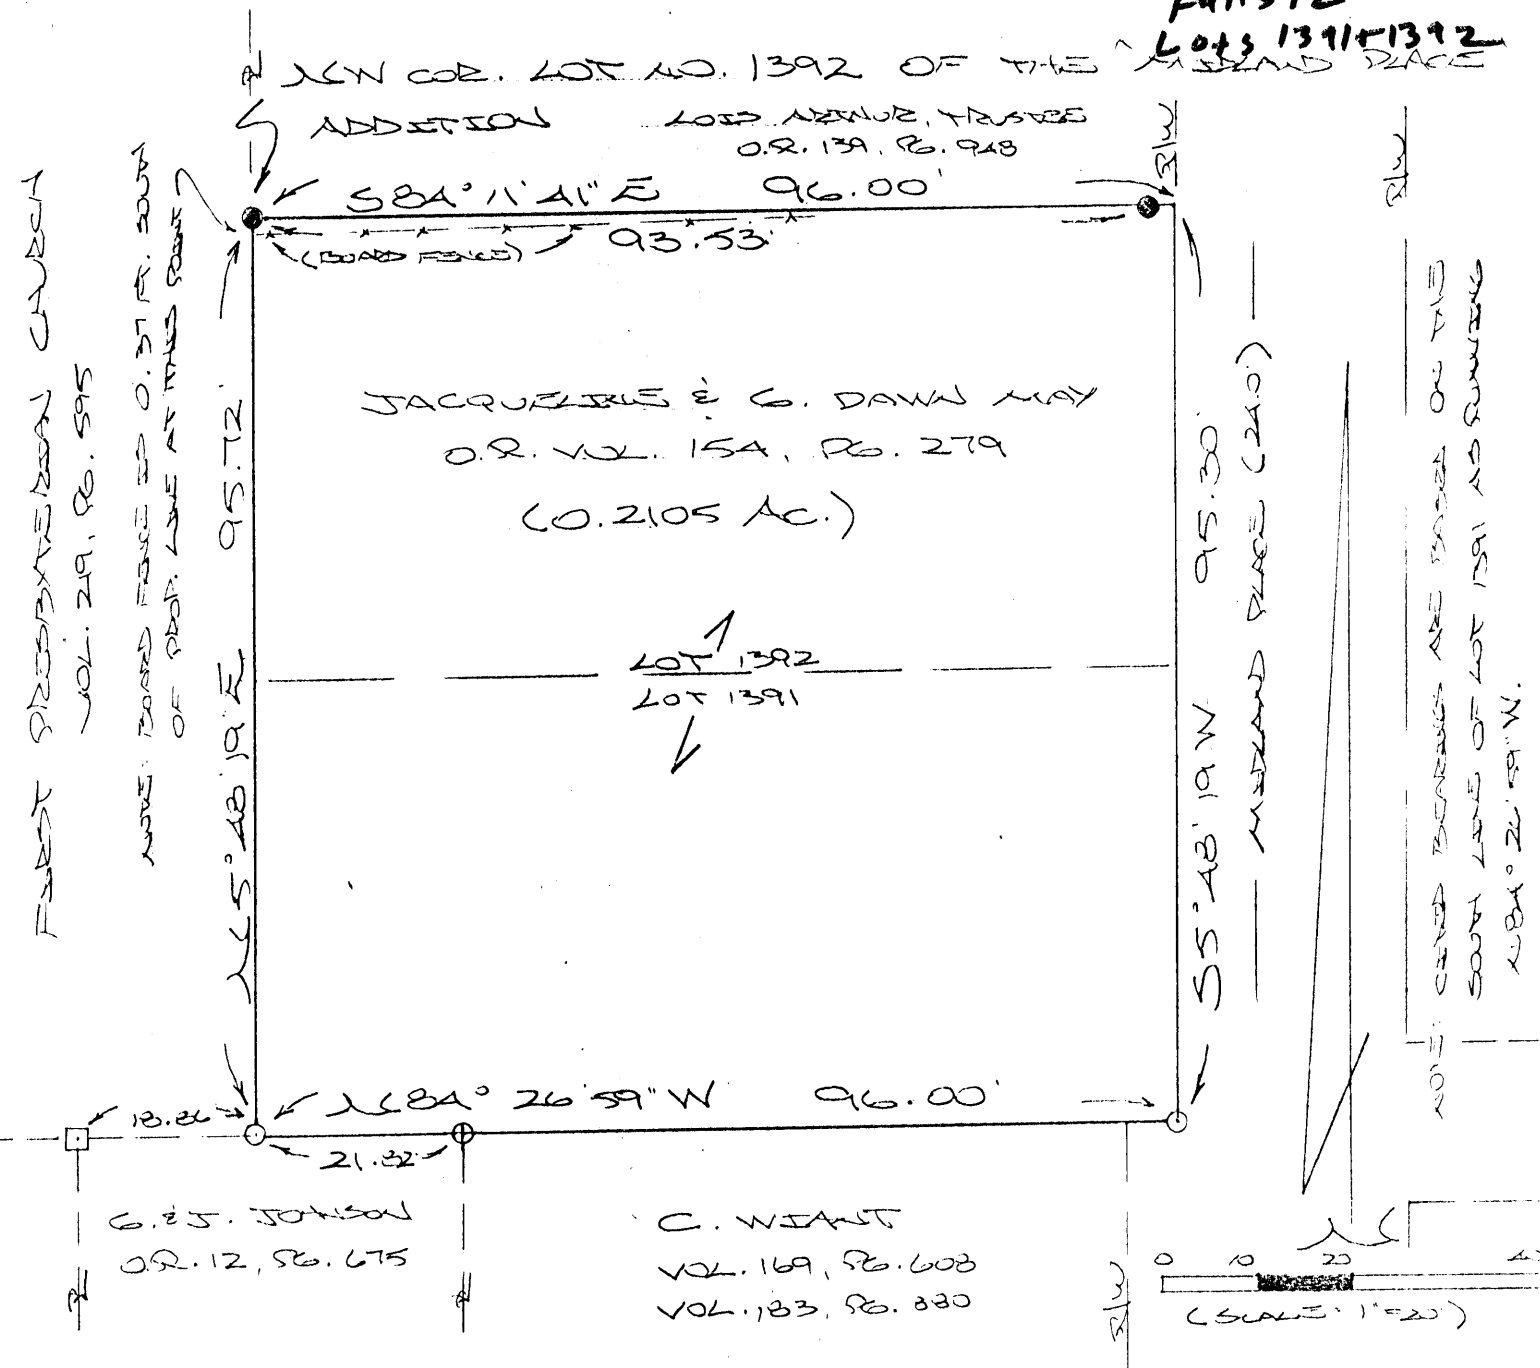 Lots 1391+1392
NW COR. LOT NO. 1392 OF THE MIDLAND PLACE
ADDITION
LOIS ARTHUR, TRUSTEE
O.R. 139, PG. 948
R/W
R/W
S 84° 11' 41" E 96.00'
93.53'
(BOARD FENCE)
FIRST PRESBYTERIAN CHURCH
VOL. 219, PG. 595
NOTE: BOARD FENCE IS 0.37 FT. SOUTH
OF PROP. LINE AT THIS POINT
N 5° 48' 19" E 95.72'
JACQUELINE & G. DAWN MAY
O.R. VOL. 154, PG. 279
(0.2105 AC.)
LOT 1392
LOT 1391
S 5° 48' 19" W 95.30'
MIDLAND PLACE (24.0')
NOTE: CITED BEARINGS ARE BASED ON THE
SOUTH LINE OF LOT 1391 AS RUNNING
N 84° 26' 59" W.
N 84° 26' 59" W 96.00'
18.86
21.82
G. & J. JOHNSON
O.R. 12, PG. 675
C. WIANT
VOL. 169, PG. 608
VOL. 183, PG. 880
R/W
N
0 10 20
(SCALE: 1"=20')